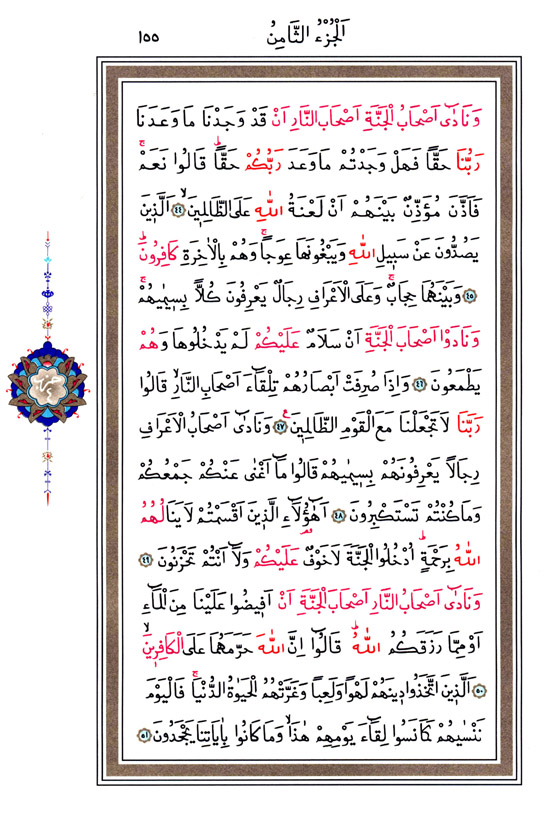 اَلْجُزْءُ الثَّامِنُ ١٥٥
وَنَادٰٓى اَصْحَابُ الْجَنَّةِ اَصْحَابَ النَّارِ اَنْ قَدْ وَجَدْنَا مَا وَعَدَنَا
رَبُّنَا حَقًّا فَهَلْ وَجَدْتُمْ مَا وَعَدَ رَبُّكُمْ حَقًّاۜ قَالُوا نَعَمْۚ
فَاَذَّنَ مُؤَذِّنٌ بَيْنَهُمْ اَنْ لَعْنَةُ اللّٰهِ عَلَى الظَّالِمِينَۙ ﴿٤٤﴾ اَلَّذِينَ
يَصُدُّونَ عَنْ سَبِيلِ اللّٰهِ وَيَبْغُونَهَا عِوَجًاۚ وَهُمْ بِالْاٰخِرَةِ كَافِرُونَۜ
﴿٤٥﴾ وَبَيْنَهُمَا حِجَابٌۚ وَعَلَى الْاَعْرَافِ رِجَالٌ يَعْرِفُونَ كُلًّا بِسِيمٰيهُمْۚ
وَنَادَوْا اَصْحَابَ الْجَنَّةِ اَنْ سَلَامٌ عَلَيْكُمْ لَمْ يَدْخُلُوهَا وَهُمْ
يَطْمَعُونَ ﴿٤٦﴾ وَاِذَا صُرِفَتْ اَبْصَارُهُمْ تِلْقَٓاءَ اَصْحَابِ النَّارِۙ قَالُوا
رَبَّنَا لَا تَجْعَلْنَا مَعَ الْقَوْمِ الظَّالِمِينَ۟ ﴿٤٧﴾ وَنَادٰٓى اَصْحَابُ الْاَعْرَافِ
رِجَالًا يَعْرِفُونَهُمْ بِسِيمٰيهُمْ قَالُوا مَٓا اَغْنٰى عَنْكُمْ جَمْعُكُمْ
وَمَا كُنْتُمْ تَسْتَكْبِرُونَ ﴿٤٨﴾ اَهٰٓؤُ۬لَٓاءِ الَّذِينَ اَقْسَمْتُمْ لَا يَنَالُهُمُ
اللّٰهُ بِرَحْمَةٍۜ اُدْخُلُوا الْجَنَّةَ لَا خَوْفٌ عَلَيْكُمْ وَلَٓا اَنْتُمْ تَحْزَنُونَ ﴿٤٩﴾
وَنَادٰٓى اَصْحَابُ النَّارِ اَصْحَابَ الْجَنَّةِ اَنْ اَفِيضُوا عَلَيْنَا مِنَ الْمَٓاءِ
اَوْ مِمَّا رَزَقَكُمُ اللّٰهُۜ قَالُٓوا اِنَّ اللّٰهَ حَرَّمَهُمَا عَلَى الْكَافِرِينَۙ
﴿٥٠﴾ اَلَّذِينَ اتَّخَذُوا دِينَهُمْ لَهْوًا وَلَعِبًا وَغَرَّتْهُمُ الْحَيٰوةُ الدُّنْيَاۚ فَالْيَوْمَ
نَنْسٰيهُمْ كَمَا نَسُوا لِقَٓاءَ يَوْمِهِمْ هٰذَاۙ وَمَا كَانُوا بِاٰيَاتِنَا يَجْحَدُونَ ﴿٥١﴾